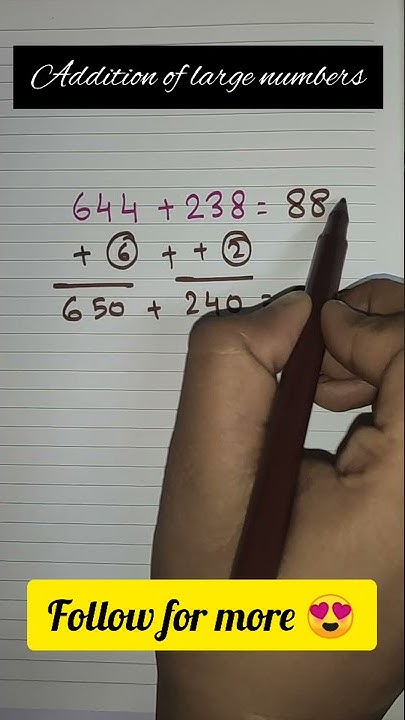 Addition of large numbers
644 + 238 = 88
+ 6 + + 2
650 + 240 =
Follow for more 😍